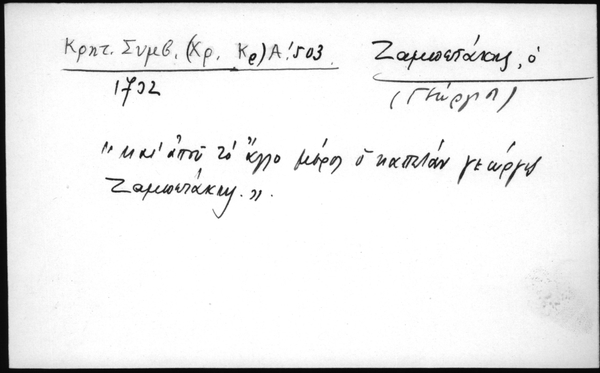 Κρητ. Συμβ. (Χρ. Κρ) Α! 503.
1732
Ζαμπετάκης, ὁ
(Γεώργη)
"καὶ ἀποῦ τὸ ἄλλο μέρος ὁ καπετάν γεώργης
Ζαμπετάκης."